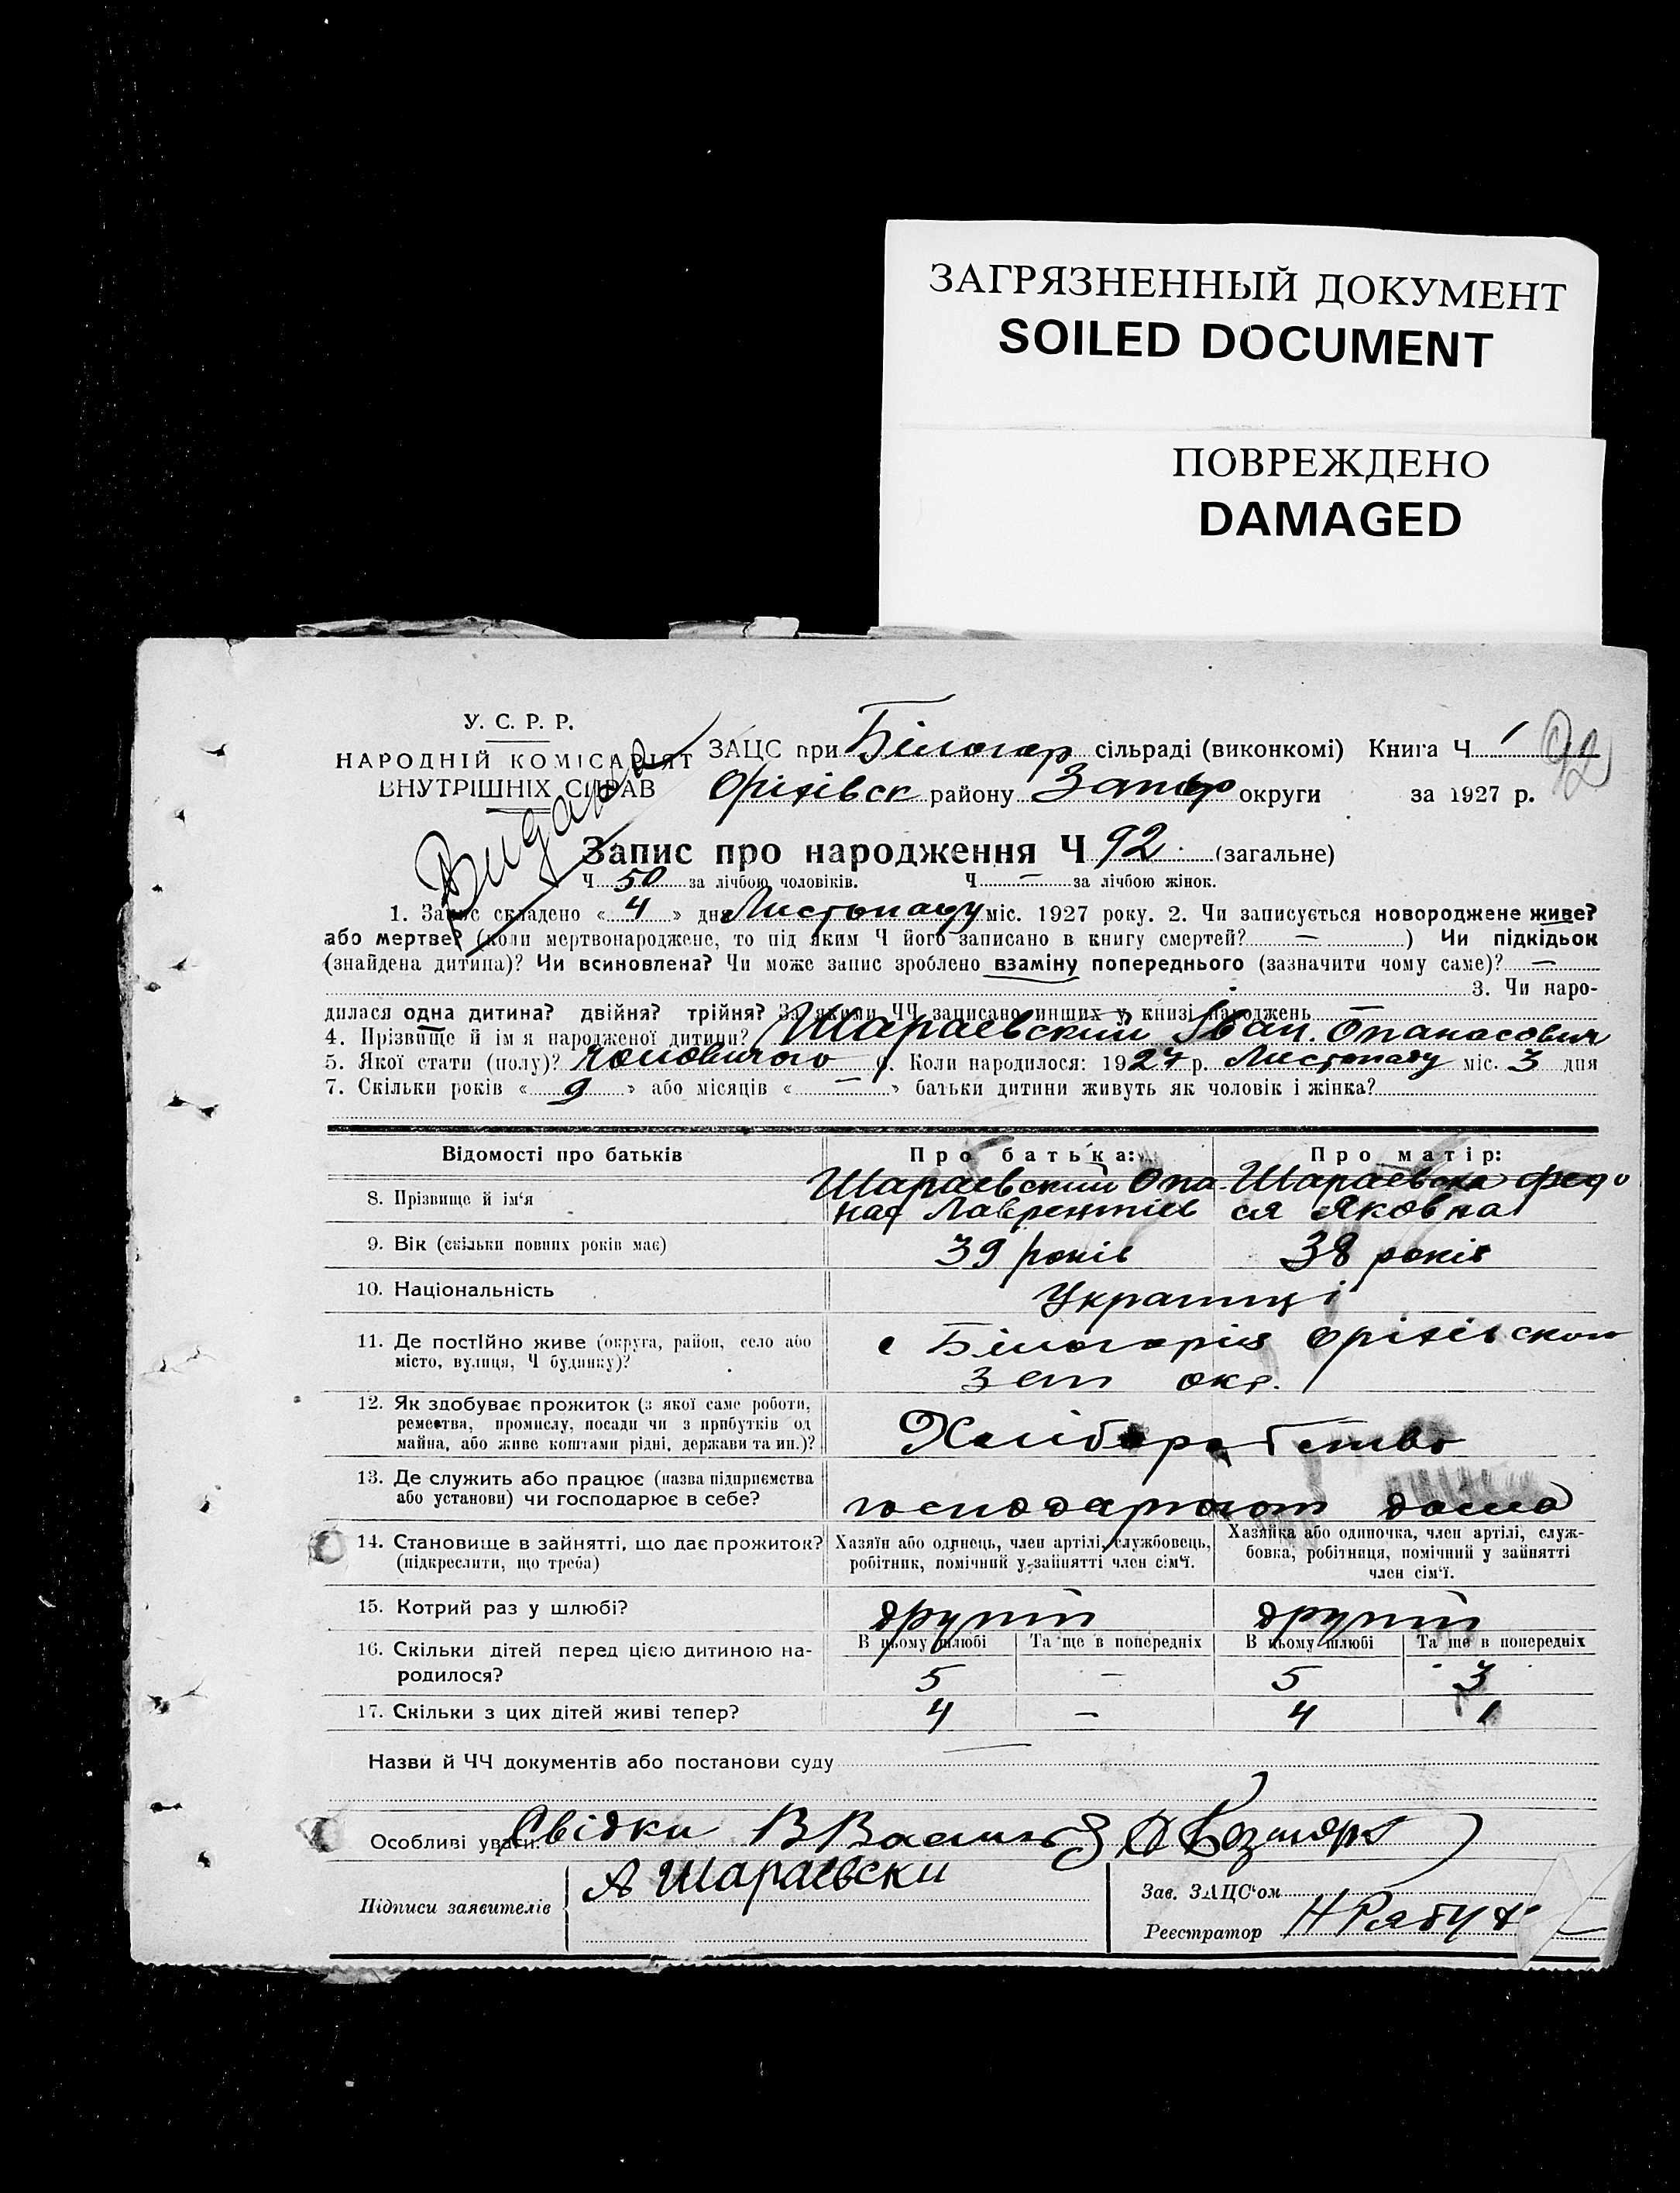 ЗАГРЯЗНЕННЫЙ ДОКУМЕНТ
SOILED DOCUMENT
ПОВРЕЖДЕНО
DAMAGED
У. С. Р. Р.
НАРОДНІЙ КОМІСАРІЯТ
ВНУТРІШНІХ СПРАВ
Видано
ЗАЦС при Білогор сільраді (виконкомі) Книга Ч 1 92
Оріхівск району Запор округи за 1927 р.
Запис про народження Ч 92. (загальне)
Ч 50 за лічбою чоловіків. Ч — за лічбою жінок.
1. Запис складено « 4 » дня Листопаду міс. 1927 року. 2. Чи записується новороджене живе?
або мертве? (коли мертвонароджене, то під яким Ч його записано в книгу смертей? — ) Чи підкідьок
(знайдена дитина)? Чи всиновлена? Чи може запис зроблено взаміну попереднього (зазначити чому саме)? —
3. Чи наро-
дилася одна дитина? двійня? трійня? За якими ЧЧ записано инших у книзі народжень
4. Прізвище й ім'я народженої дитини? Шараєвский Іван. Опанасович
5. Якої стати (полу)? чоловичого 6. Коли народилося: 1927 р. Листопаду міс. 3 дня
7. Скільки років « 9 » або місяців « — » батьки дитини живуть як чоловік і жінка?
Відомості про батьків Про батька: Про матір:
8. Прізвище й ім'я Шараєвский Опа Шараєвска Федо
нас Лаврентіев ся Яковна
9. Вік (скільки повних років має) 39 років 38 років
10. Національність Українці
11. Де постійно живе (округа, район, село або с Білогорія Оріхівскою
місто, вулиця, Ч будинку)? Зап окр.
12. Як здобуває прожиток (з якої саме роботи,
ремества, промислу, посади чи з прибутків од Хліборобство
майна, або живе коштами рідні, держави та ин.)?
13. Де служить або працює (назва підприємства
або установи) чи господарює в себе? господарюют дома
14. Становище в зайнятті, що дає прожиток? Хазяїн або одинець, член артілі, службовець, Хазяйка або одиночка, член артілі, служ-
(підкреслити, що треба) робітник, помічний у зайнятті член сім'ї. бовка, робітниця, помічний у зайнятті
член сім'ї.
15. Котрий раз у шлюбі? другий другий
16. Скільки дітей перед цією дитиною на- В цьому шлюбі Та ще в попередніх В цьому шлюбі Та ще в попередніх
родилося? 5 — 5 3
17. Скільки з цих дітей живі тепер? 4 — 4 1
Назви й ЧЧ документів або постанови суду
Особливі уваги: Свідки В
Підписи заявителів А Шараєвски Зав. ЗАЦС'ом
Реєстратор